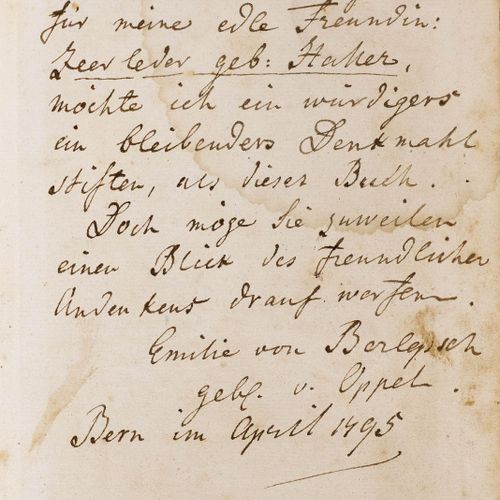 für meine edle Freundin:
Zeerleder geb: Haller,
möchte ich ein würdigers
ein bleibenders Denkmahl
stiften, als dieses Buch.
Doch möge Sie zuweilen
einen Blick des freundlichen
Andenkens drauf werfen.
Emilie von Berlepsch
geb. v. Oppel.
Bern im April 1795